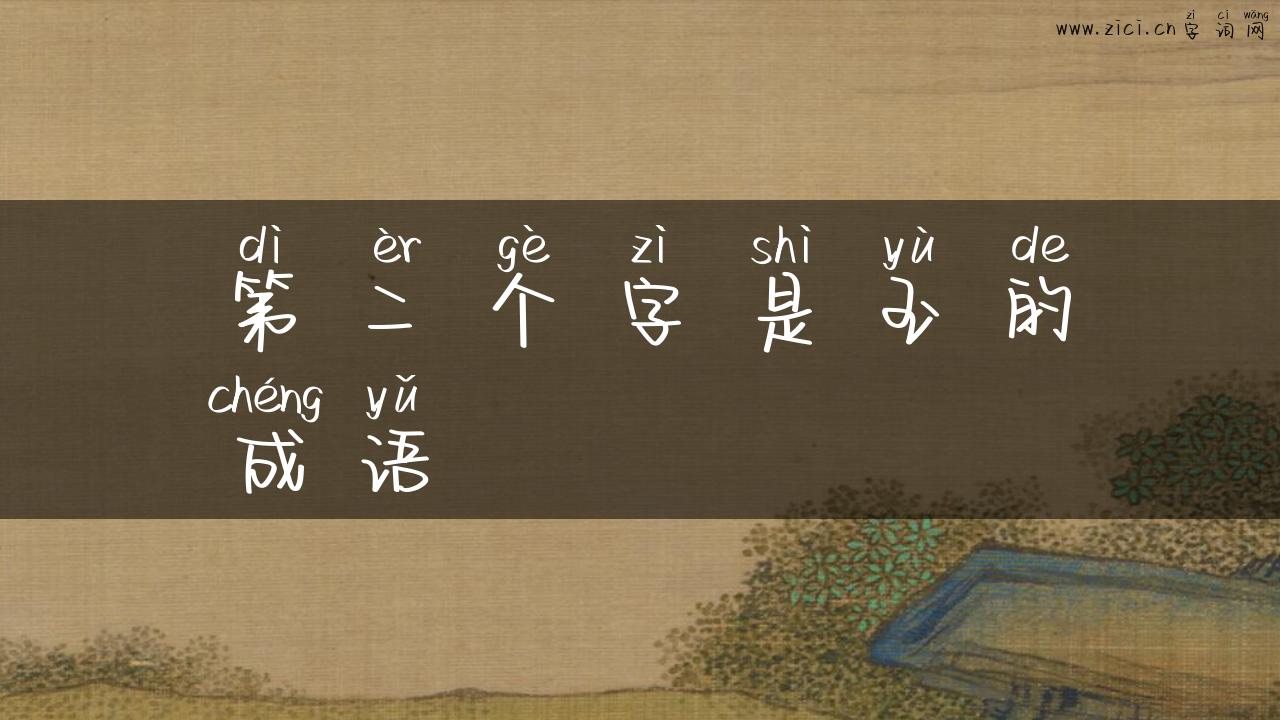 zì cí wǎng
www.zici.cn 字词网
dì èr gè zì shì yù de
第二个字是玉的
chéng yǔ
成语